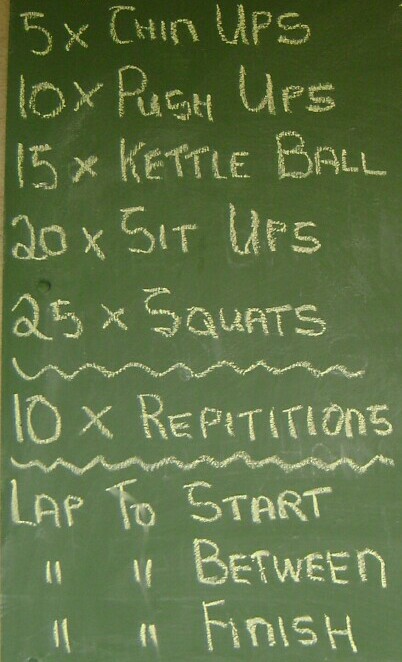 5 x CHIN UPS
10 x PUSH UPS
15 x KETTLE BALL
20 x SIT UPS
25 x SQUATS
10 x REPITITIONS
LAP TO START
" " BETWEEN
" " FINISH